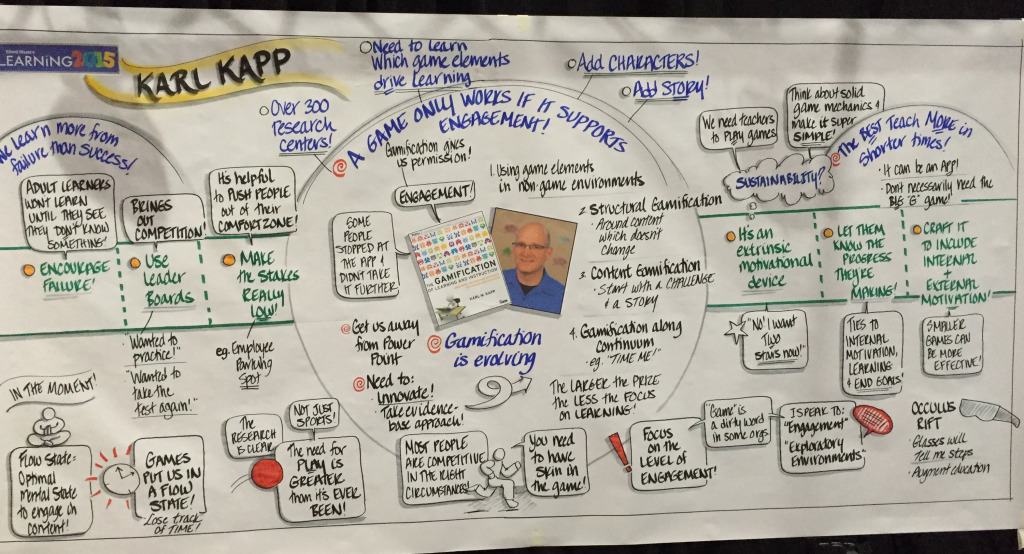 LEARNING 2015
KARL KAPP
Need to learn
Which game elements
drive learning
Add CHARACTERS!
Add STORY!
Over 300
Research
centers!
We Learn more from
Failure than Success!
ADULT LEARNERS
WONT LEARN
UNTIL THEY SEE
THEY DON'T KNOW
SOMETHING!
BRINGS
OUT
COMPETITION!
It's helpful
to PUSH PEOPLE
out of Their
COMFORT ZONE!
ENCOURAGE
FAILURE!
USE
LEADER
BOARDS
MAKE
THE STAKES
REALLY
LOW!
"Wanted to
practice!"
"Wanted to
take the
test again!"
eg. Employee
Parking
SPOT
A GAME ONLY WORKS IF IT SUPPORTS
ENGAGEMENT!
Gamification gives
us permission!
ENGAGEMENT!
SOME
PEOPLE
STOPPED AT
THE APP &
DIDN'T TAKE
IT FURTHER
THE
GAMIFICATION
OF LEARNING AND INSTRUCTION
KARL M. KAPP
1. Using game elements
in non-game environments
2. Structural Gamification
- Around content
which doesn't
Change
3. Content Gamification
- Start with a CHALLENGE
& a STORY
4. Gamification along
continuum
- eg. "TIME ME!"
THE LARGER THE PRIZE
THE LESS THE FOCUS
ON LEARNING!
Gamification
is evolving
Get us away
from Power
Point
Need to:
Innovate!
Take evidence-
base approach!
We need teachers
to PLAY games
Think about solid
game mechanics &
make it super
SIMPLE!
SUSTAINABILITY?
The BEST Teach MORE in
Shorter times!
It can be an App!
Don't necessarily need the
BIG "G" game!
It's an
extrinsic
motivational
device
LET THEM
KNOW THE
PROGRESS
THEY'RE
MAKING!
CRAFT IT
TO INCLUDE
INTERNAL
+
EXTERNAL
MOTIVATION!
"No! I want
TWO
stars now!"
TIES TO
INTERNAL
MOTIVATION,
LEARNING
& END GOALS!
SMALLER
GAMES
CAN BE
MORE
EFFECTIVE!
IN THE MOMENT!
Flow State:
Optimal
Mental State
to engage in
content!
GAMES
PUT US IN
A FLOW
STATE!
Lose track
OF TIME!
The
RESEARCH
is CLEAR
NOT JUST
SPORTS!
The need for
PLAY is
GREATER
than it's EVER
BEEN!
MOST PEOPLE
ARE COMPETITIVE
IN THE RIGHT
CIRCUMSTANCES!
You need
to have
skin in
the game!
FOCUS
ON THE
LEVEL OF
ENGAGEMENT!
"Game" is
a dirty word
in some orgs
I SPEAK TO:
"Engagement"
"Exploratory
Environments"
OCCULUS
RIFT
Glasses will
Tell me steps
Augment education